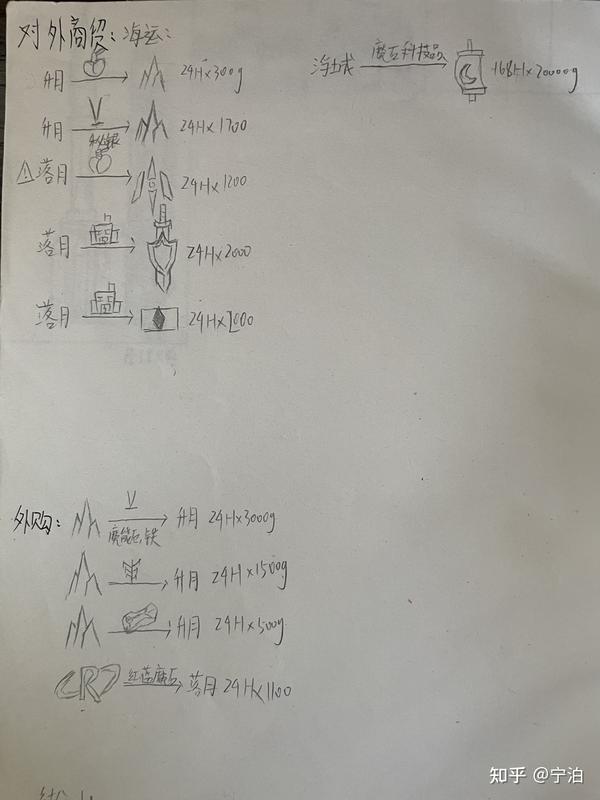 对外商贸:海运:
升月 24H×300g
升月 24H×1700
落月 24H×1200
落月 24H×2000
落月 24H×2000
净土城 魔瓦科技品 168H×20000g
外购:
魔能石,铁 升月 24H×3000g
升月 24H×1500g
升月 24H×500g
CR7 红蓝魔瓦 落月 24H×1100
知乎 @宁泊